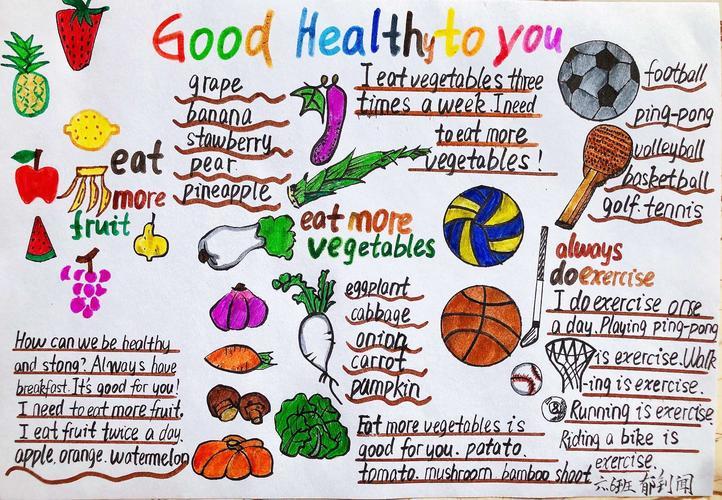 Good Healthy to you
grape
banana
stawberry
pear
pineapple
eat
more
fruit
I eat vegetables three
times a week. I need
to eat more
vegetables!
football
ping-pong
volleyball
basketball
golf. tennis
eat more
vegetables
eggplant
cabbage
onion
carrot
pumpkin
always
do exercise
I do exercise orse
a day. Playing ping-pong
is exercise. Walk
-ing is exercise.
Running is exercise.
Riding a bike is
exercise.
How can we be healthy
and stong? Always have
breakfast. It's good for you!
I need to eat more fruit.
I eat fruit twice a day.
apple. orange. watermelon
Eat more vegetables is
good for you. patato.
tomato. mushroom. bamboo shoot
六6班